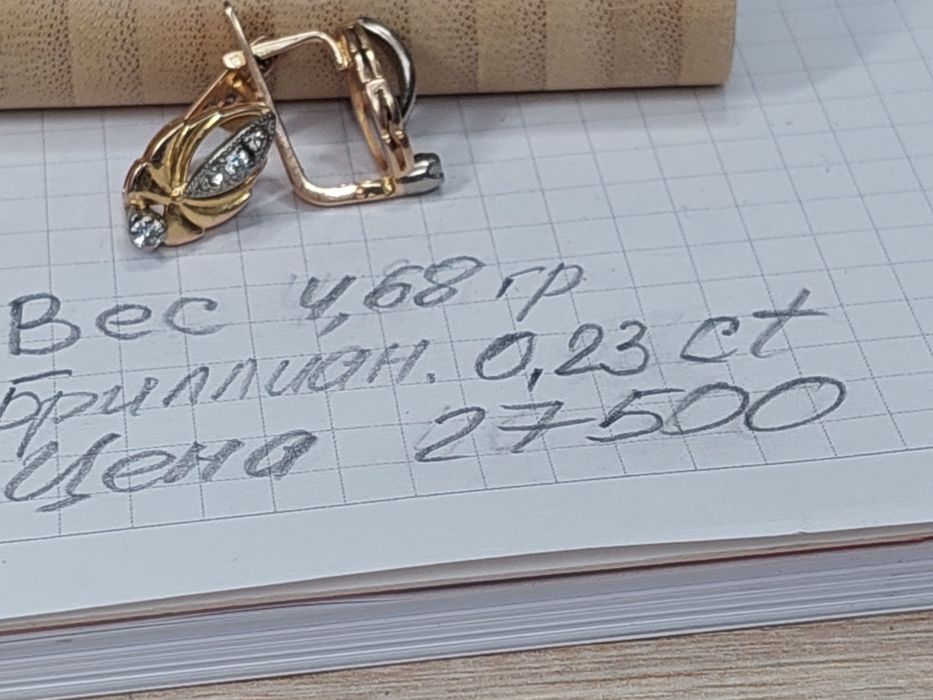 Вес 4,68 гр
Бриллиан. 0,23 ct
Цена 27500